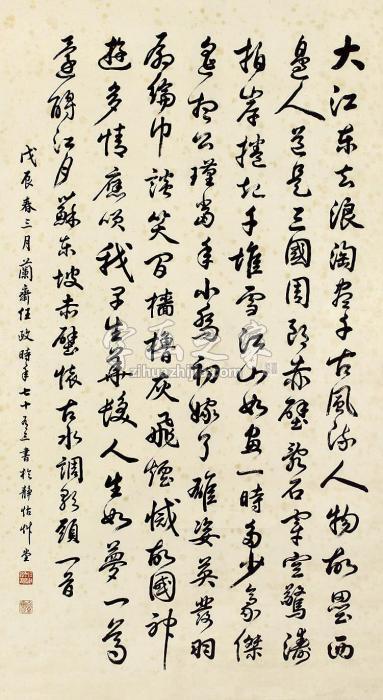 大江东去浪淘尽千古風流人物故壘西
邊人道是三國周郎赤壁亂石穿空驚濤
拍岸捲起千堆雪江山如畫一時多少豪傑
遙想公瑾當年小喬初嫁了雄姿英發羽
扇綸巾談笑間檣櫓灰飛煙滅故國神
遊多情應笑我早生華髮人生如夢一尊
還酹江月蘇东坡赤壁懷古水調歌頭一首
戊辰春三月蘭齋任政時年七十又三書於靜怡艸堂
字画之家
zihuazhijia.com